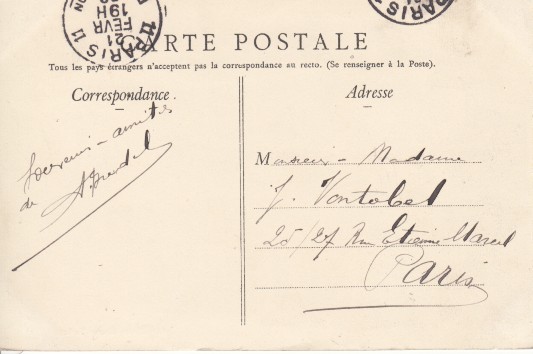 PARIS 11
19H
21
FEVR
PARIS
CARTE POSTALE
Tous les pays étrangers n'acceptent pas la correspondance au recto. (Se renseigner à la Poste).
Correspondance.
Adresse
Souvenir - amitiés
de
Monsieur - Madame
J. Vontobel
25/27 Rue Etienne Marcel
Paris